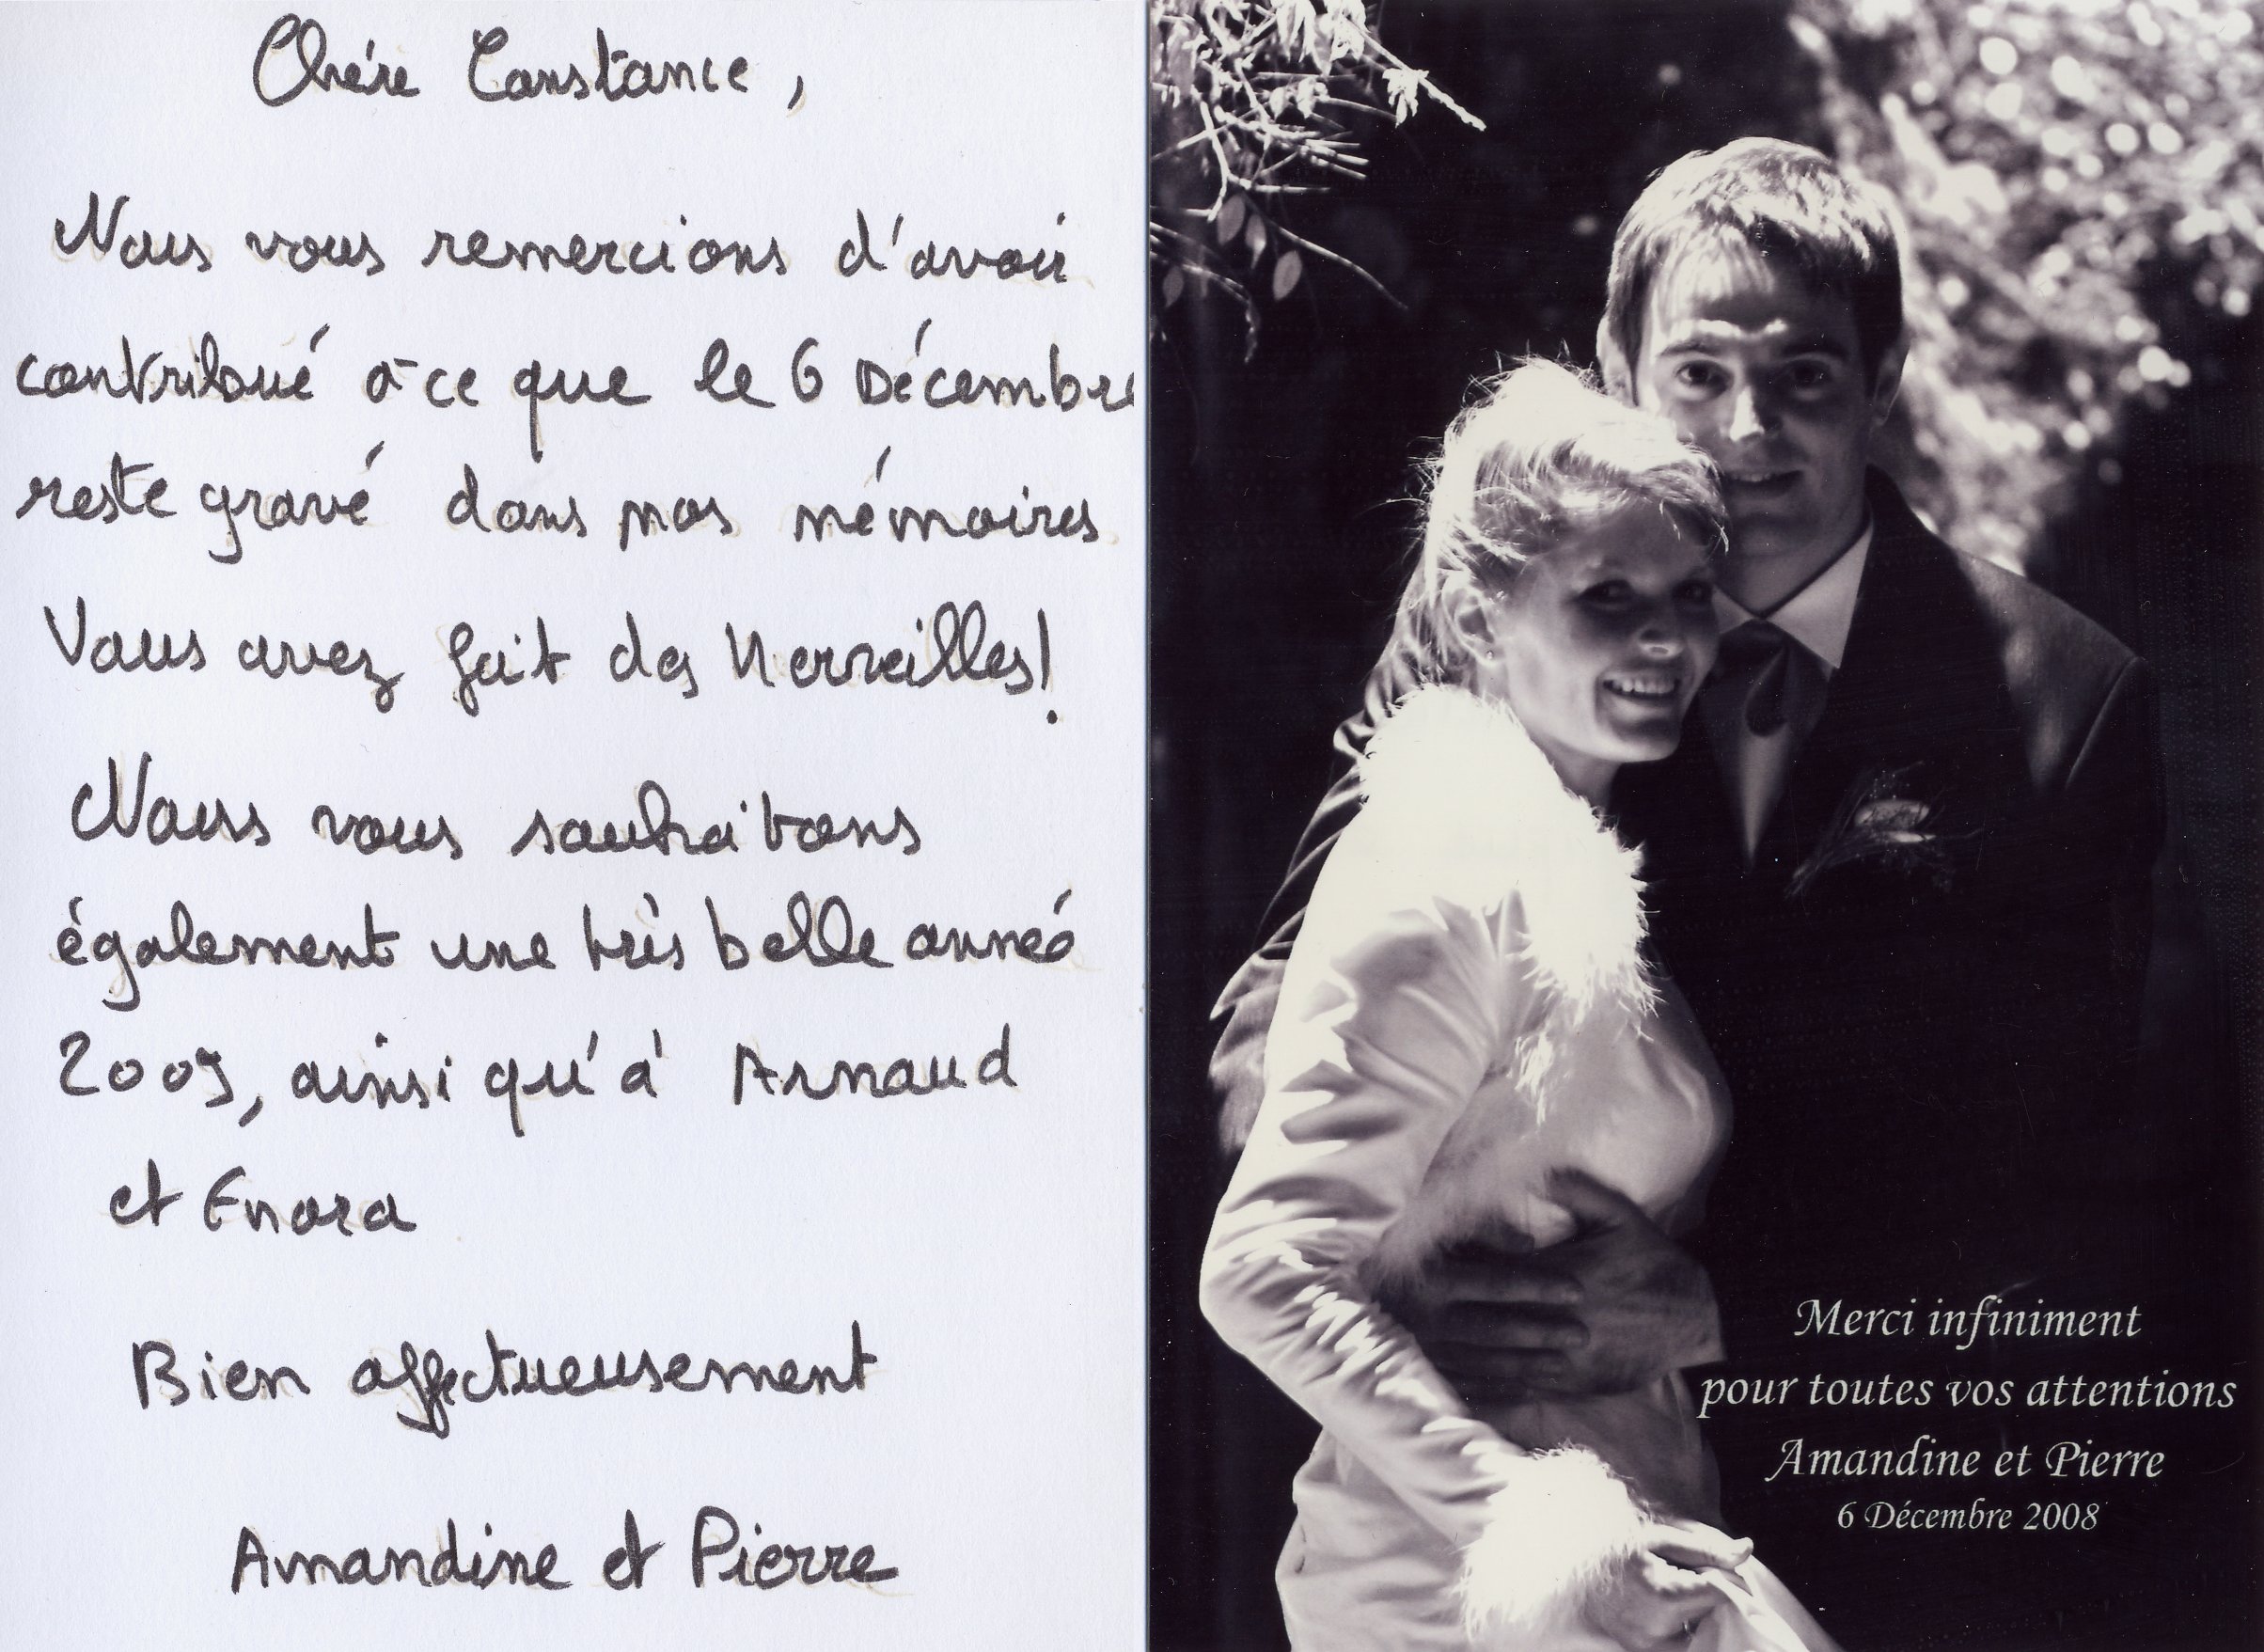 Chère Constance,
Nous vous remercions d'avoir
contribué à ce que le 6 Décembre
reste gravé dans nos mémoires
Vous avez fait des Merveilles!
Nous vous souhaitons
également une très belle année
2009, ainsi qu'à Arnaud
et Enora
Bien affectueusement
Amandine et Pierre
Merci infiniment
pour toutes vos attentions
Amandine et Pierre
6 Décembre 2008